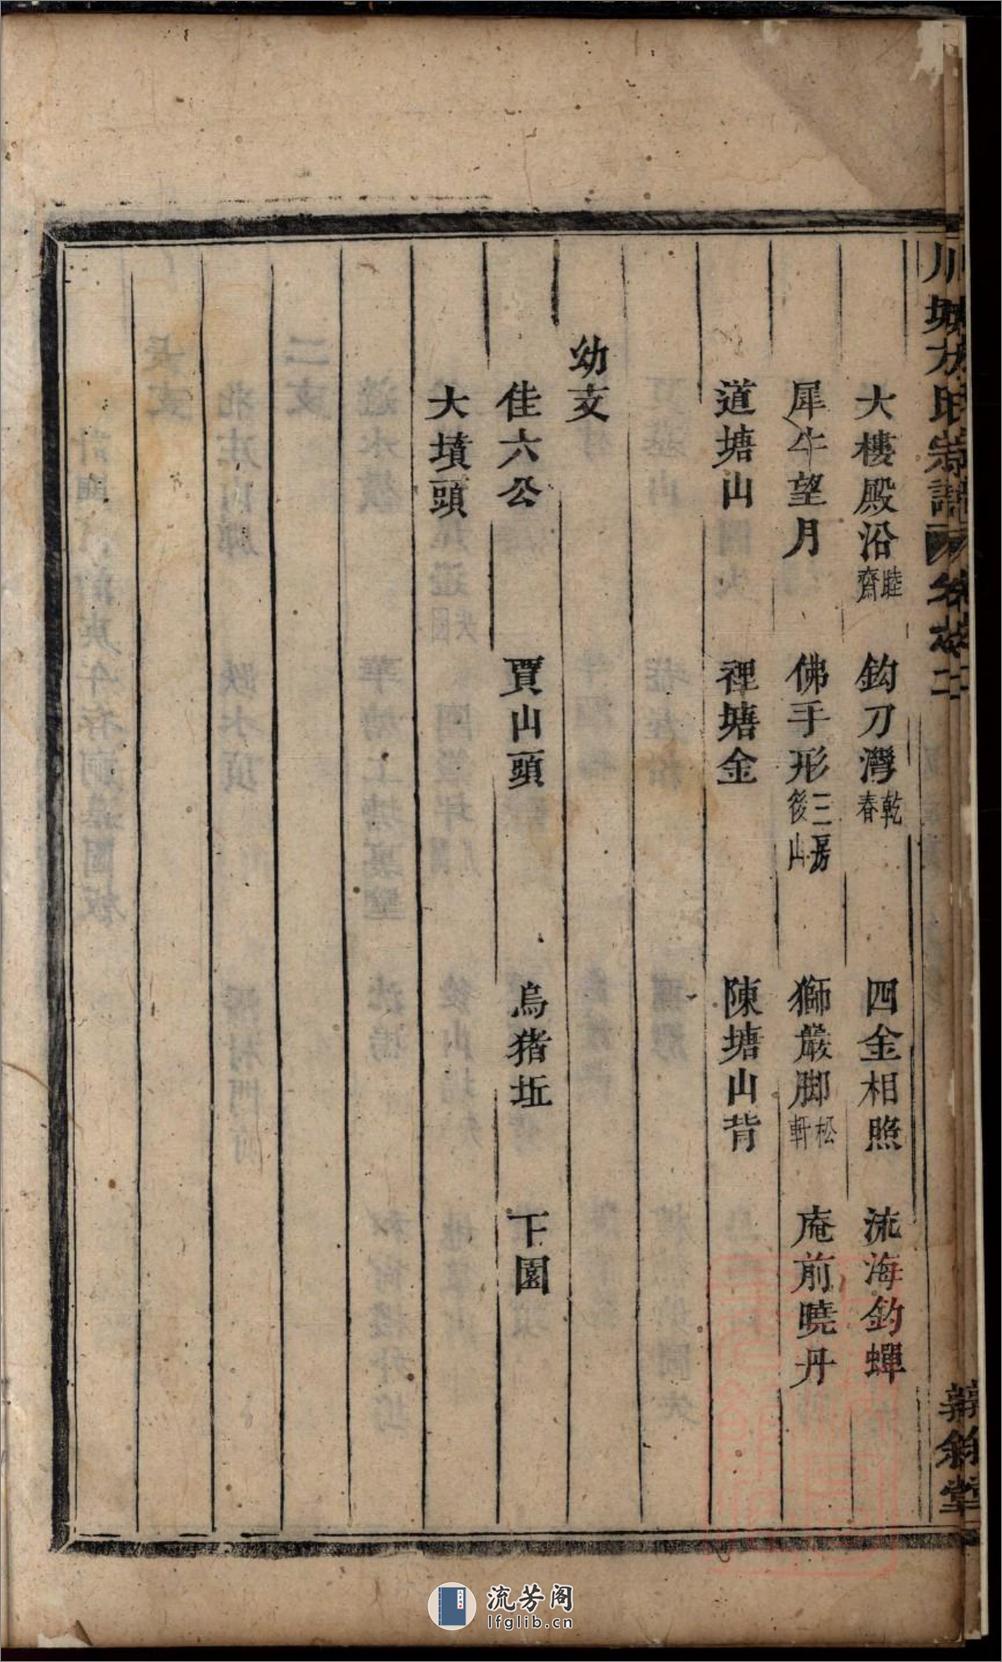 大樓殿沿睦齋 鈎刀灣乾春 四金相照 流海釣蟬
犀牛望月 佛手形三房後山 獅巖脚松軒 庵前曉丹
道塘山 裡塘金 陳塘山背
幼支
佳六公 賈山頭 烏猪坵 下園
大墳頭
流芳阁
lfglib.cn